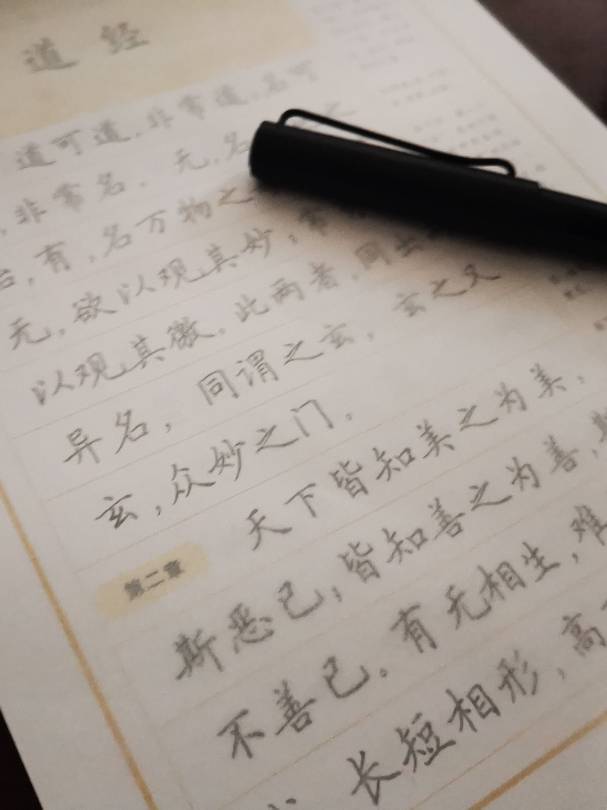 道经
道可道,非常道,名可
,非常名。无,名
始,有,名万物之
无,欲以观其妙;常
以观其徼。此两者,同出
异名,同谓之玄,玄之又
玄,众妙之门。
天下皆知美之为美,
第二章
斯恶已;皆知善之为善,斯
不善已。有无相生,难
长短相形,高